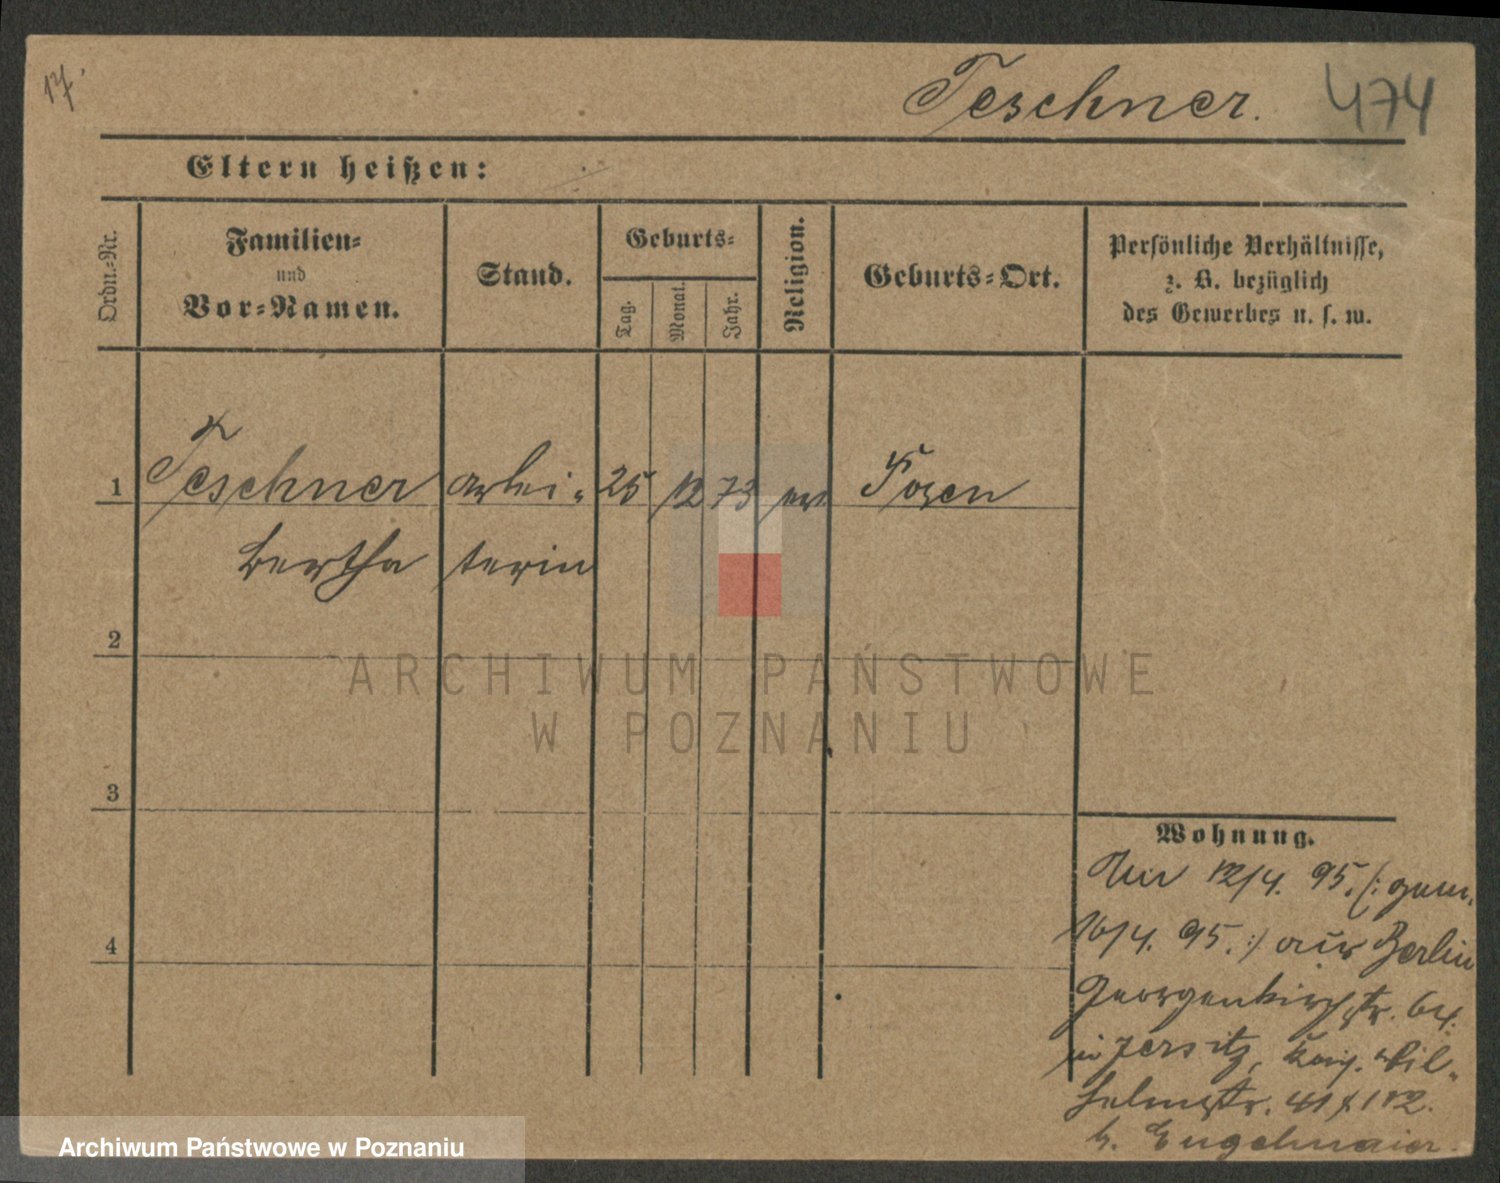 17.
Teschner.
474
Eltern heißen:
Ordn.-Nr.
Familien-
und
Vor-Namen.
Stand.
Geburts-
Tag.
Monat.
Jahr.
Religion.
Geburts-Ort.
Persönliche Verhältnisse,
z. B. bezüglich
des Gewerbes u. s. w.
1 Teschner arbei- 25 12 73 Posen
Bertha terin
2
ARCHIWUM PAŃSTWOWE
W POZNANIU
3
4
Wohnung.
12/4. 95. (: gem.
16/4. 95. :) aus Berlin
Georgenkirchstr. 64.
in Jersitz, Kais. Wil-
helmstr. 41
b. Engelmaier.
Archiwum Państwowe w Poznaniu